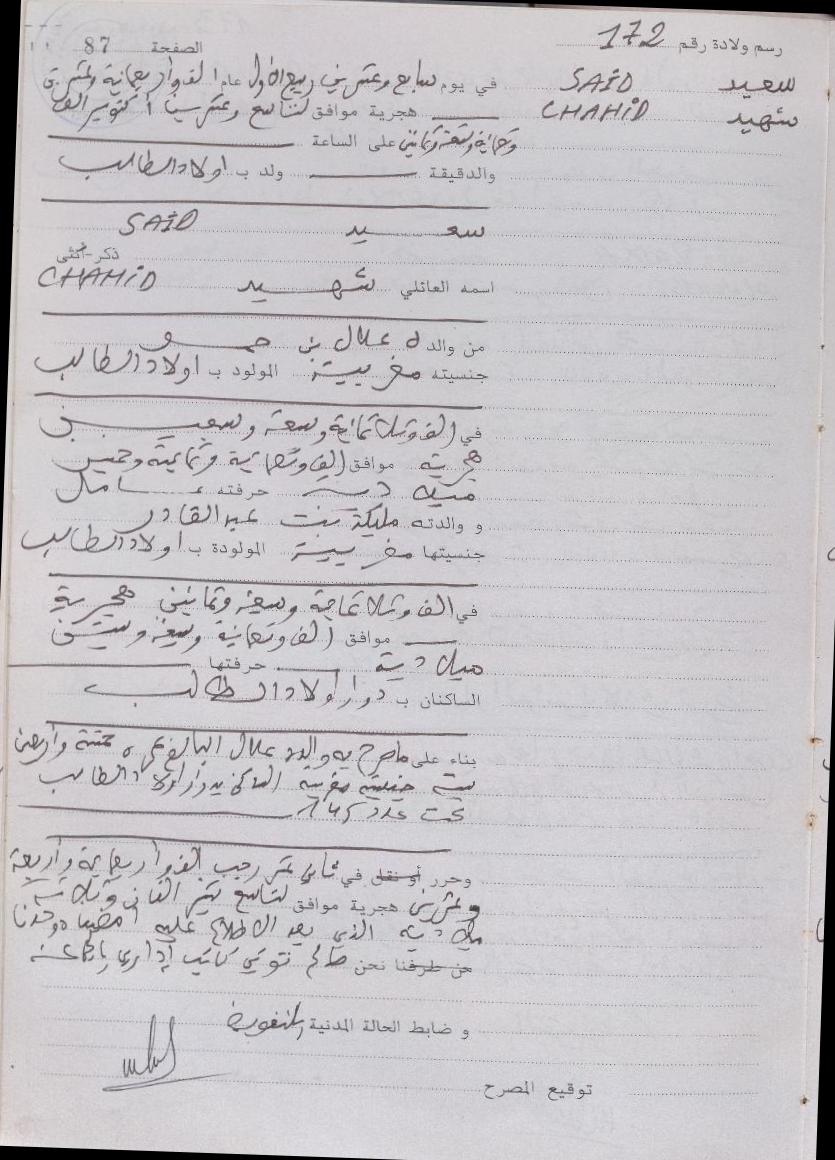 رسم ولادة رقم 172
الصفحة 87
سعيد SAID
شهيد CHAHID
في يوم سابع وعشرين ربيع الأول عام ألف وأربعمائة و
هجرية موافق لتاسع وعشرين أكتوبر ألف
وتسعمائة وتسعة وثمانين على الساعة
والدقيقة ولد ب اولاد الطالب
سعيد SAID
ذكر-أنثى
اسمه العائلي شهيد CHAHID
من والده علال بن حمو
جنسيته مغربية المولود ب اولاد الطالب
في ألف وثلاثمائة و وسبعين
هجرية موافق ألف وتسعمائة و وخمسين
ميلادية حرفته عامل
و والدته مليكة بنت عبد القادر
جنسيتها مغربية المولودة ب اولاد الطالب
في ألف وثلاثمائة و وثمانين هجرية
موافق ألف وتسعمائة و وستين
ميلادية حرفتها
الساكنان ب دوار اولاد الطالب
بناء على ما صرح به والده علال البالغ عمره خمسة وأربعين
سنة جنسيته مغربية الساكن بدوار اولاد الطالب
تحت عدد
وحرر أو نقل في ثاني عشر رجب ألف وأربعمائة وأربعة
وعشرين هجرية موافق لتاسع شتنبر ألفان وثلاثة
ميلادية الذي بعد الاطلاع عليه أمضيناه وحدنا
من طرفنا نحن صالح كاتب إداري
و ضابط الحالة المدنية بالتفويض
توقيع المصرح